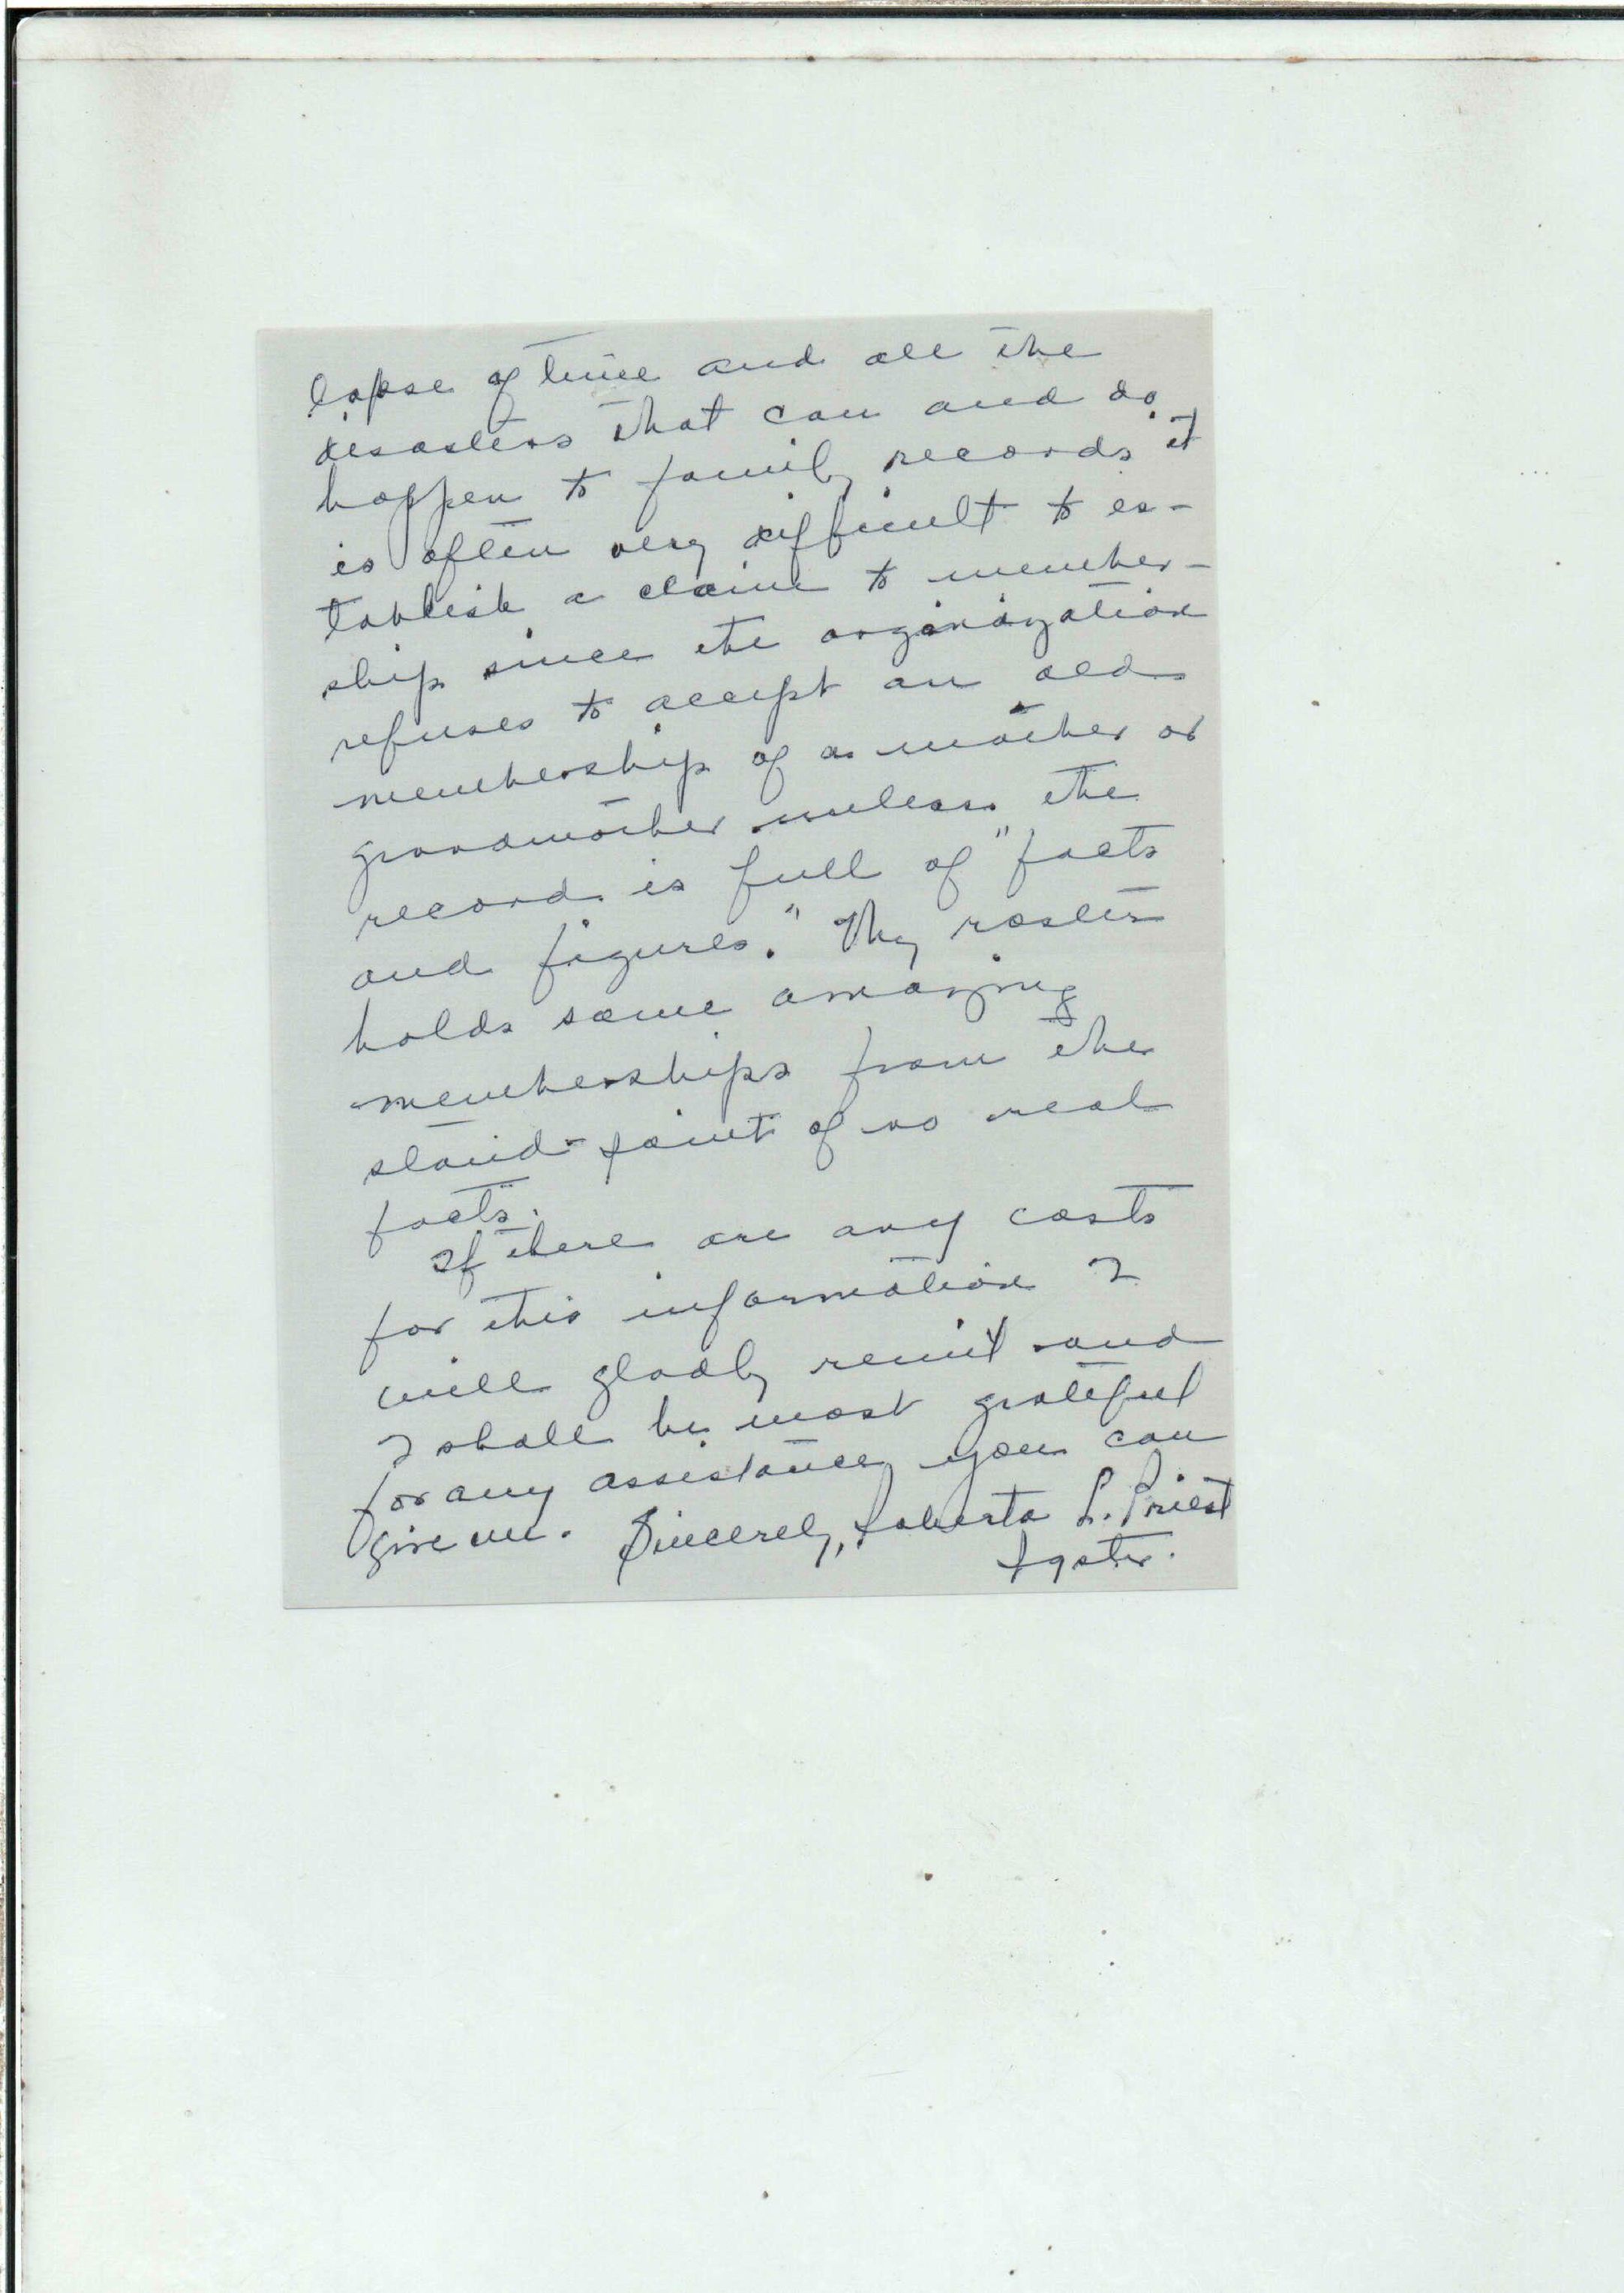 lapse of time and all the
disasters that can and do
happen to family records it
is often very difficult to es-
tablish a claim to member-
ship since the organization
refuses to accept an old
membership of a mother or
grandmother unless the
record is full of "facts
and figures." My roster
holds some amazing
memberships from the
stand-point of no real
facts.
If there are any costs
for this information I
will gladly remit and
I shall be most grateful
for any assistance you can
give me. Sincerely, Roberta L. Priest